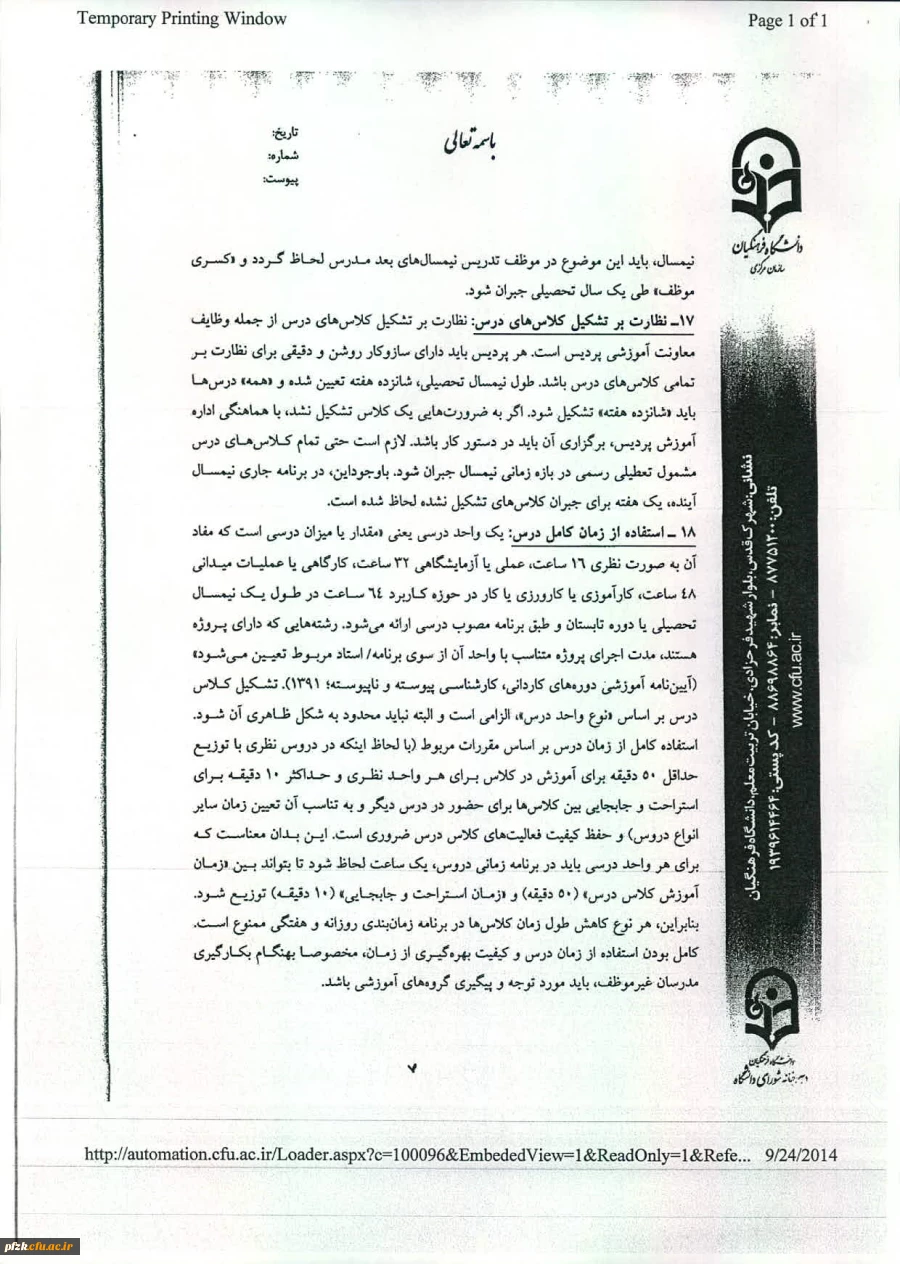 Temporary Printing Window
Page 1 of 1
باسمه تعالی
تاریخ:
شماره:
پیوست:
دانشگاه فرهنگیان
سازمان مرکزی
نیمسال، باید این موضوع در موظف تدریس نیمسال‌های بعد مدرس لحاظ گردد و «کسری
موظف» طی یک سال تحصیلی جبران شود.
۱۷ـ نظارت بر تشکیل کلاس‌های درس: نظارت بر تشکیل کلاس‌های درس از جمله وظایف
معاونت آموزشی پردیس است. هر پردیس باید دارای سازوکار روشن و دقیقی برای نظارت بر
تمامی کلاس‌های درس باشد. طول نیمسال تحصیلی، شانزده هفته تعیین شده و «همه» درس‌ها
باید «شانزده هفته» تشکیل شود. اگر به ضرورت‌هایی یک کلاس تشکیل نشد، با هماهنگی اداره
آموزش پردیس، برگزاری آن باید در دستور کار باشد. لازم است حتی تمام کلاس‌های درس
مشمول تعطیلی رسمی در بازه زمانی نیمسال جبران شود. باوجوداین، در برنامه جاری نیمسال
آینده، یک هفته برای جبران کلاس‌های تشکیل نشده لحاظ شده است.
۱۸ ـ استفاده از زمان کامل درس: یک واحد درسی یعنی «مقدار یا میزان درسی است که مفاد
آن به صورت نظری ۱۶ ساعت، عملی یا آزمایشگاهی ۳۲ ساعت، کارگاهی یا عملیات میدانی
۴۸ ساعت، کارآموزی یا کارورزی یا کار در حوزه کاربرد ۶۴ ساعت در طول یک نیمسال
تحصیلی یا دوره تابستان و طبق برنامه مصوب درسی ارائه می‌شود. رشته‌هایی که دارای پروژه
هستند، مدت اجرای پروژه متناسب با واحد آن از سوی برنامه/ استاد مربوط تعیین می‌شود»
(آیین‌نامه آموزشی دوره‌های کاردانی، کارشناسی پیوسته و ناپیوسته؛ ۱۳۹۱). تشکیل کلاس
درس بر اساس «نوع واحد درس»، الزامی است و البته نباید محدود به شکل ظاهری آن شود.
استفاده کامل از زمان درس بر اساس مقررات مربوط (با لحاظ اینکه در دروس نظری با توزیع
حداقل ۵۰ دقیقه برای آموزش در کلاس برای هر واحد نظری و حداکثر ۱۰ دقیقه برای
استراحت و جابجایی بین کلاس‌ها برای حضور در درس دیگر و به تناسب آن تعیین زمان سایر
انواع دروس) و حفظ کیفیت فعالیت‌های کلاس درس ضروری است. این بدان معناست که
برای هر واحد درسی باید در برنامه زمانی دروس، یک ساعت لحاظ شود تا بتواند بین «زمان
آموزش کلاس درس» (۵۰ دقیقه) و «زمان استراحت و جابجایی» (۱۰ دقیقه) توزیع شود.
بنابراین، هر نوع کاهش طول زمان کلاس‌ها در برنامه زمان‌بندی روزانه و هفتگی ممنوع است.
کامل بودن استفاده از زمان درس و کیفیت بهره‌گیری از زمان، مخصوصا بهنگام بکارگیری
مدرسان غیرموظف، باید مورد توجه و پیگیری گروه‌های آموزشی باشد.
نشانی: شهرک قدس، بلوار شهید فرحزادی، خیابان تربیت معلم، دانشگاه فرهنگیان
تلفن: ۸۷۷۵۱۲۰۰ - نمابر: ۸۸۶۹۸۸۶۴ - کد پستی: ۱۹۳۹۶۱۴۴۶۴
www.cfu.ac.ir
دانشگاه فرهنگیان
دبیرخانه شورای دانشگاه
۷
http://automation.cfu.ac.ir/Loader.aspx?c=100096&EmbededView=1&ReadOnly=1&Refe... 9/24/2014
pfzk.cfu.ac.ir